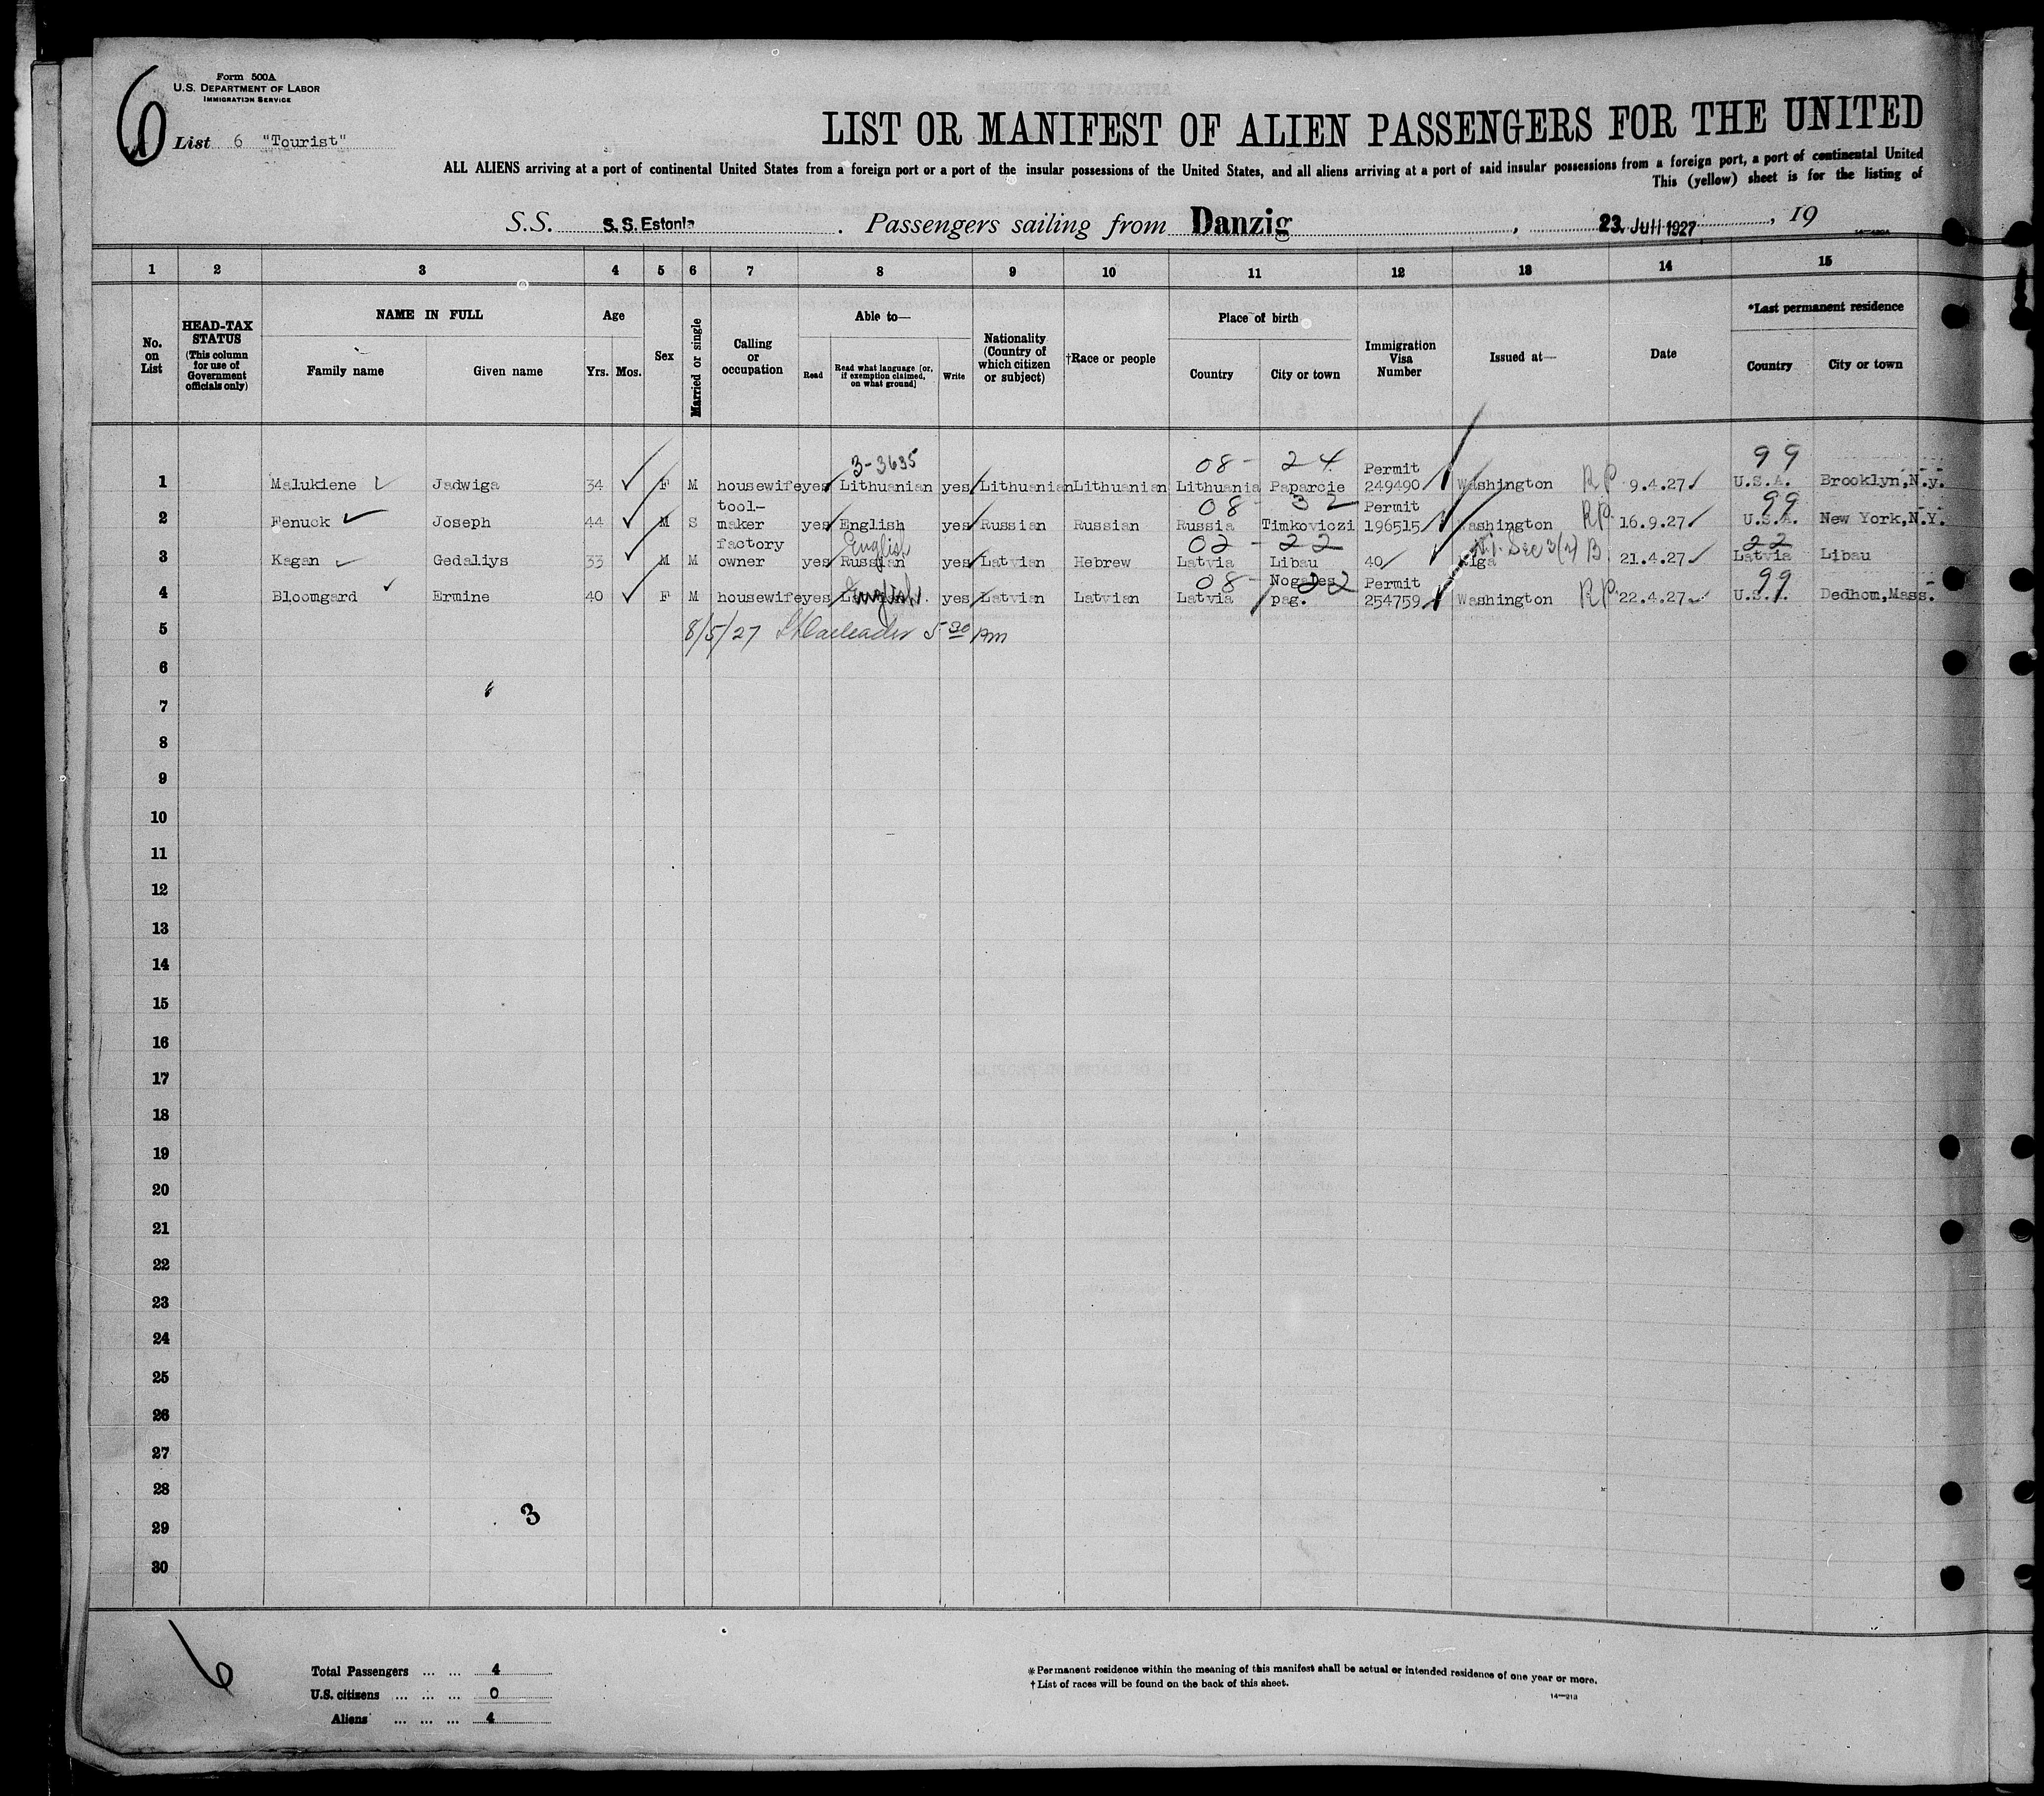 6
Form 500A
U.S. DEPARTMENT OF LABOR
IMMIGRATION SERVICE
List 6 "Tourist"
LIST OR MANIFEST OF ALIEN PASSENGERS FOR THE UNITED
ALL ALIENS arriving at a port of continental United States from a foreign port or a port of the insular possessions of the United States, and all aliens arriving at a port of said insular possessions from a foreign port, a port of continental United
This (yellow) sheet is for the listing of
S.S. S.S. Estonia . Passengers sailing from Danzig , 23. Juli 1927 , 19
1 2 3 4 5 6 7 8 9 10 11 12 13 14 15
No. on List
HEAD-TAX STATUS (This column for use of Government officials only)
NAME IN FULL
Family name Given name
Age
Yrs. Mos.
Sex
Married or single
Calling or occupation
Able to—
Read Read what language [or, if exemption claimed, on what ground] Write
Nationality (Country of which citizen or subject)
†Race or people
Place of birth
Country City or town
Immigration Visa Number
Issued at—
Date
*Last permanent residence
Country City or town
3-3635 08 - 24 Permit 99
1 Malukiene Jadwiga 34 F M housewife yes Lithuanian yes Lithuanian Lithuanian Lithuania Paparcie 249490 Washington RP 9.4.27 U.S.A. Brooklyn,N.y.
tool- 08 - 32 Permit 99
2 Fenuck Joseph 44 M S maker yes English yes Russian Russian Russia Timkoviczi 196515 Washington RP 16.9.27 U.S.A. New York,N.Y.
factory English 02 - 22 N.I. Sec 3(2) B 22
3 Kagan Gedaliys 33 M M owner yes Russian yes Latvian Hebrew Latvia Libau 40 Riga 21.4.27 Latvia Libau
English 08 - 22 Nogales Permit 99
4 Bloomgard Ermine 40 F M housewife yes yes Latvian Latvian Latvia pag. 254759 Washington RP 22.4.27 U.S.A. Dedhom,Mass.
5 8/5/27 5 30 pm
6
7
8
9
10
11
12
13
14
15
16
17
18
19
20
21
22
23
24
25
26
27
28
29
30
3
6
Total Passengers ... ... 4
U.S. citizens ... ... ... 0
Aliens ... ... ... 4
*Permanent residence within the meaning of this manifest shall be actual or intended residence of one year or more.
†List of races will be found on the back of this sheet.
14—213